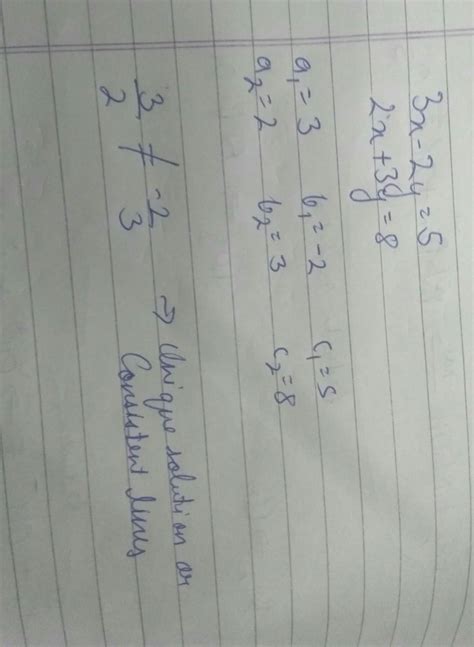 3x-2y=5
2x+3y=8
a₁=3 b₁=-2 c₁=5
a₂=2 b₂=3 c₂=8
3/2 ≠ -2/3 ⇒ Unique solution or
Consistent lines